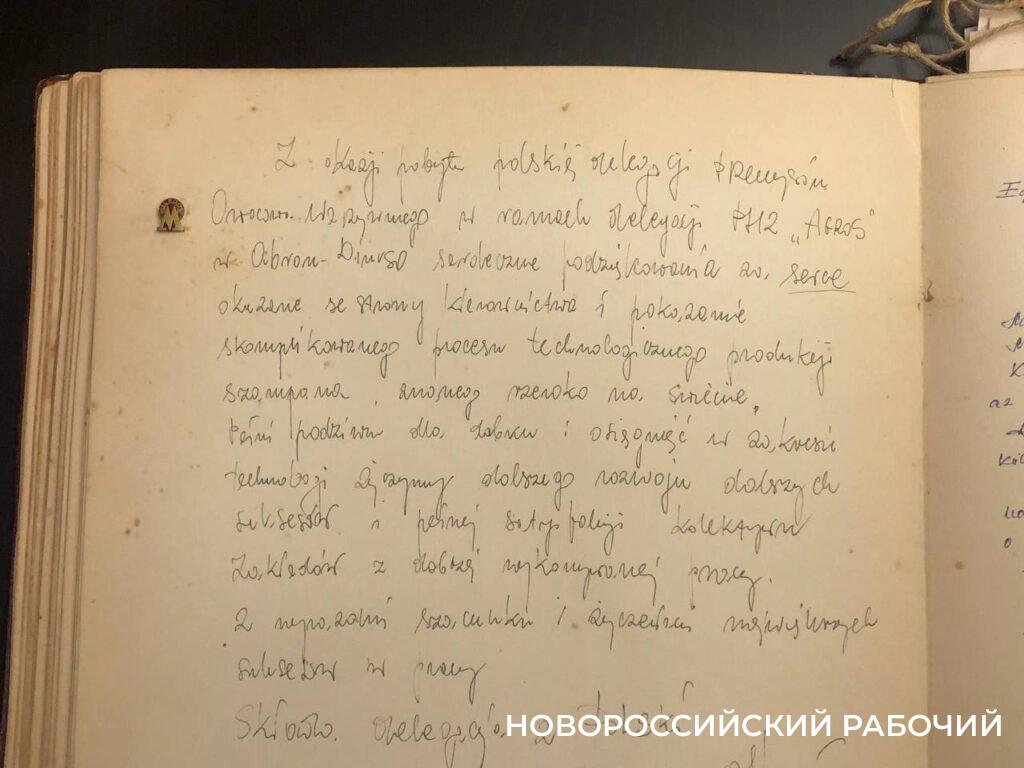 Z okazji pobytu polskiej delegacji Przemysłu
Owocowo-Warzywnego w ramach delegacji PHZ „Agros”
w Abrau-Diurso serdeczne podziękowania za serce
okazane ze strony kierownictwa i pokazanie
skomplikowanego procesu technologicznego produkcji
szampana, znanego szeroko na świecie.
Pełni podziwu dla dobku i osiągnięć w zakresie
technologi życzymy dalszego rozwoju dalszych
sukcesów i pełnej satysfakcji kolektywu
Zakładów z dalszej wykonywanej pracy.
Z wyrazami szacunku i życzeniami największych
sukcesów w pracy
Składa delegacja z Polski
Ед
аз
о
НОВОРОССИЙСКИЙ РАБОЧИЙ